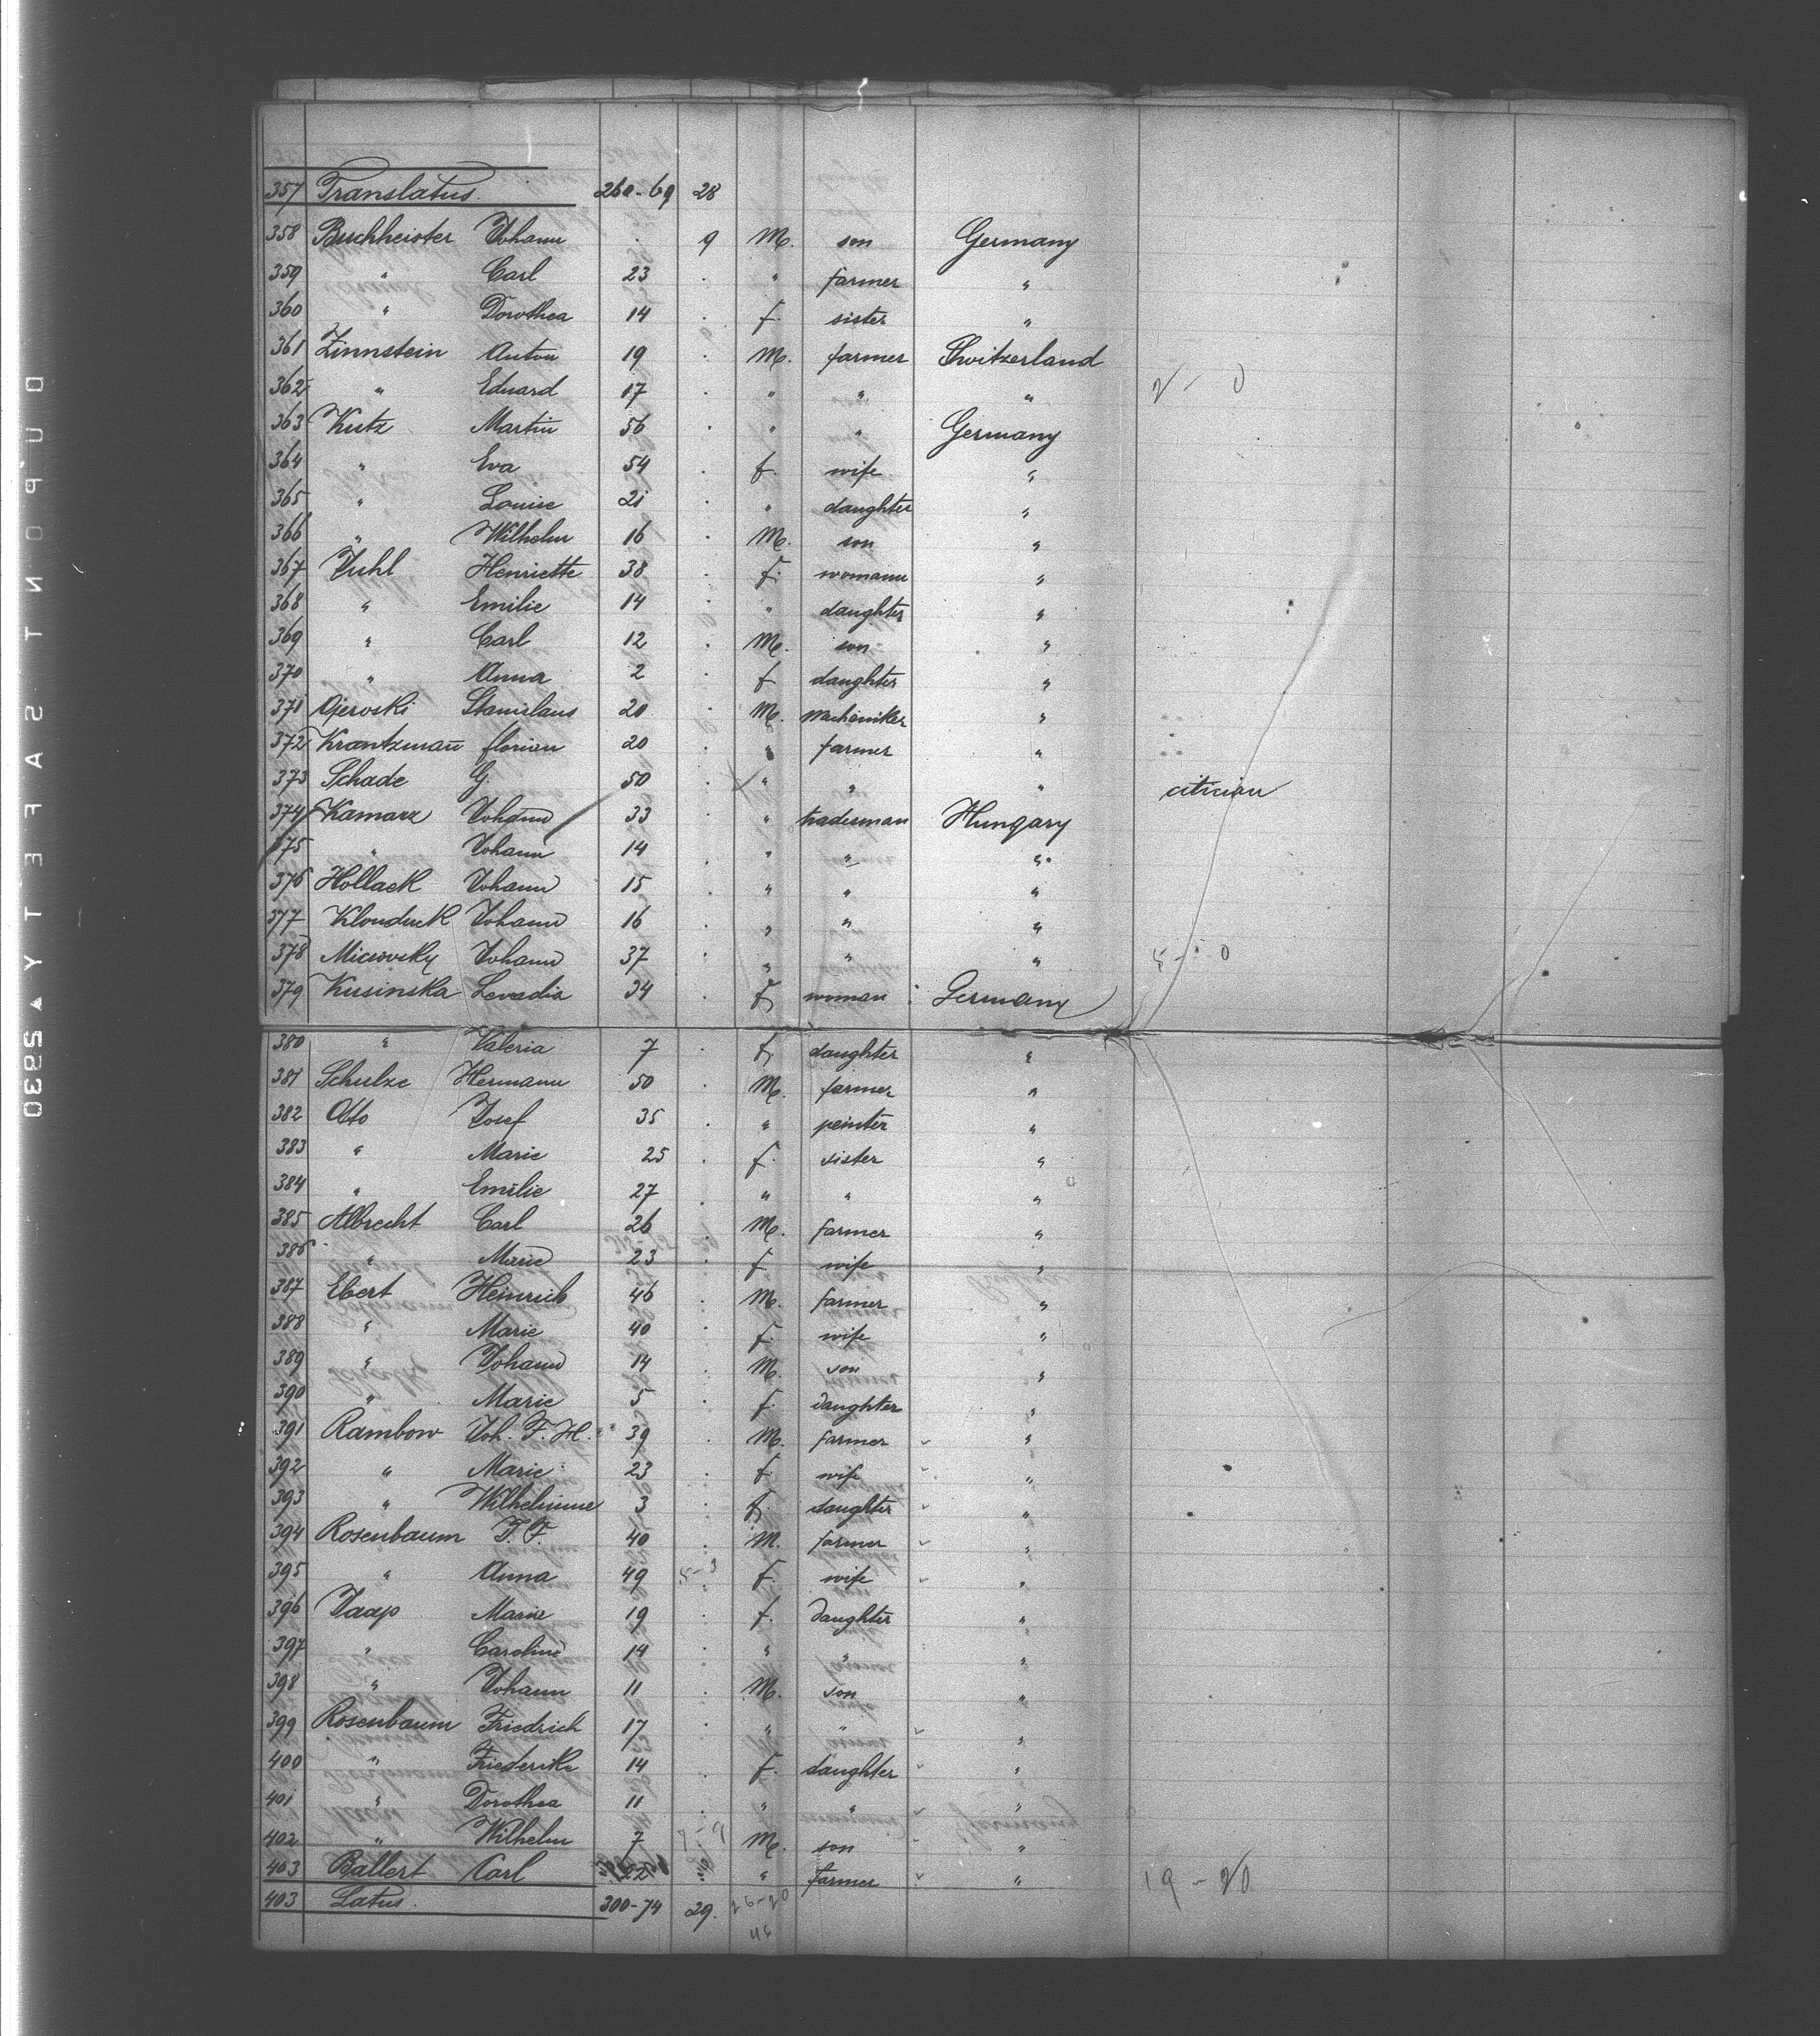 357 Translatus. 260-69 28
358 Buchheister Johann . 9 M. son Germany
359 " Carl 23 . " farmer "
360 " Dorothea 14 . f. sister "
361 Zinnstein Anton 19 . M. farmer Switzerland
362 " Eduard 17 . " " "
363 Kutz Martin 56 . " " Germany
364 " Eva 54 . f. wife "
365 " Louise 21 . " daughter "
366 " Wilhelm 16 . M. son "
367 Juhl Henriette 38 . f. womann "
368 " Emilie 14 . " daughter "
369 " Carl 12 . M. son "
370 " Anna 2 . f daughter "
371 Ojeroski Stanislaus 20 . M. mechaniker "
372 Krantzmann florian 20 . " farmer "
373 Schade G. 50 . " " " citician
374 Kamarz Johann 33 . " tradesman Hungary
375 " Johann 14 . " " "
376 Hollack Johann 15 . " " "
377 Klonduck Johann 16 . " " "
378 Micsovsky Johann 37 . " " "
379 Kusinska Levadia 34 . f. woman Germany
380 " Valeria 7 . f. daughter "
381 Schulze Hermann 50 . M. farmer "
382 Otto Josef 35 . " peinter "
383 " Marie 25 . f. sister "
384 " Emilie 27 . " " "
385 Albrecht Carl 26 . M. farmer "
386 " Marie 23 . f. wife "
387 Ebert Heinrich 46 . M. farmer "
388 " Marie 40 . f. wife "
389 " Johann 14 . M. son "
390 " Marie 5 . f. daughter "
391 Rambow Joh. F. H. 39 . M. farmer "
392 " Marie 23 . f. wife "
393 " Wilhelmine 3 . f. daughter "
394 Rosenbaum J. F. 40 . M. farmer "
395 " Anna 49 . f. wife "
396 Jaap Marie 19 . f. daughter "
397 " Caroline 14 . " " "
398 " Johann 11 . M. son "
399 Rosenbaum Friedrich 17 . " " "
400 " Friederike 14 . f. daughter "
401 " Dorothea 11 . " " "
402 " Wilhelm 7 . M. son "
403 Ballert Carl 22 " farmer " 19-20
403 Latus. 300-74 29. 26-20
46
DUPONT SAFETY 2930